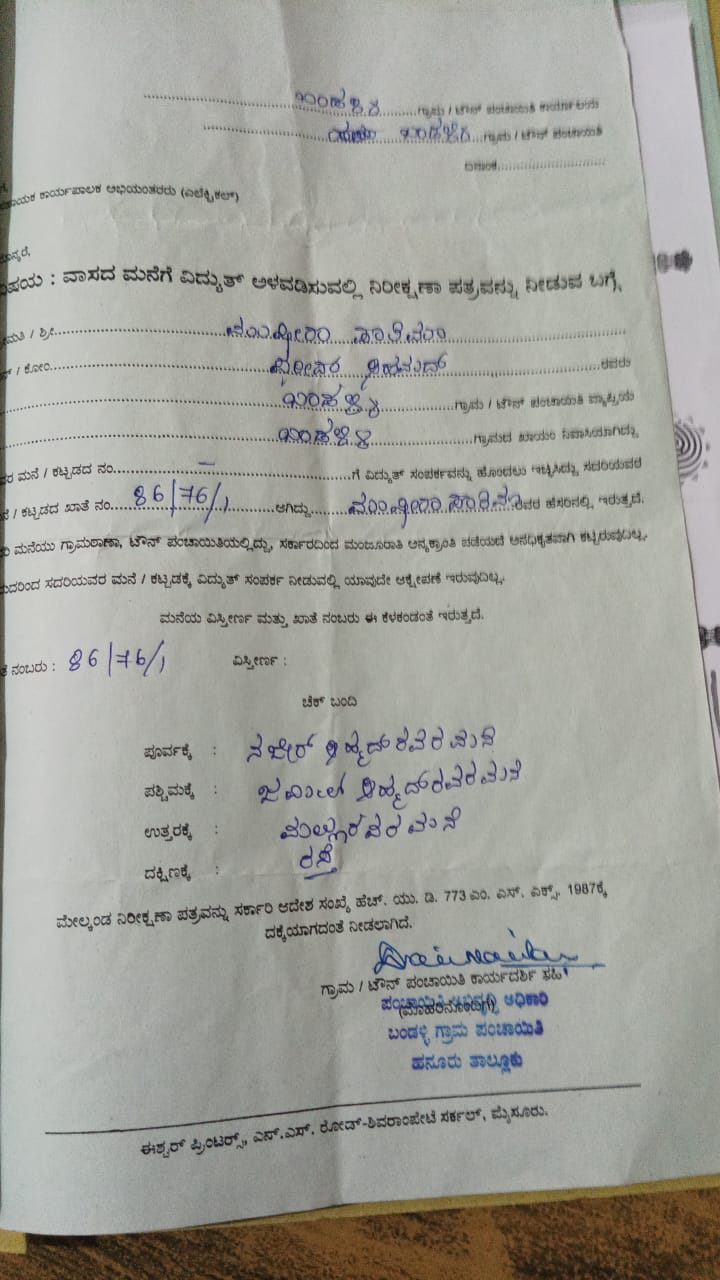 ಬಂಡಳ್ಳಿ ಗ್ರಾಮ / ಟೌನ್ ಪಂಚಾಯಿತಿ ಕಾರ್ಯಾಲಯ
ಬಂಡಳ್ಳಿ ಗ್ರಾಮ / ಟೌನ್ ಪಂಚಾಯಿತಿ
ದಿನಾಂಕ
ಕಾರ್ಯಪಾಲಕ ಅಭಿಯಂತರರು (ಎಲೆಕ್ಟ್ರಿಕಲ್)
: ವಾಸದ ಮನೆಗೆ ವಿದ್ಯುತ್ ಅಳವಡಿಸುವಲ್ಲಿ ನಿರೀಕ್ಷಣಾ ಪತ್ರವನ್ನು ನೀಡುವ ಬಗ್ಗೆ
/ ಶ್ರೀ
/ ಕೋಂ ಅಹಮದ್ ರವರು
ಬಂಡಳ್ಳಿ ಗ್ರಾಮ / ಟೌನ್ ಪಂಚಾಯಿತಿ ವ್ಯಾಪ್ತಿಯ
ಬಂಡಳ್ಳಿ ಗ್ರಾಮದ ಖಾಯಂ ನಿವಾಸಿಯಾಗಿದ್ದು
ಮನೆ / ಕಟ್ಟಡದ ನಂ. – ಗೆ ವಿದ್ಯುತ್ ಸಂಪರ್ಕವನ್ನು ಹೊಂದಲು ಇಚ್ಛಿಸಿದ್ದು ಸದರಿಯವರ
/ ಕಟ್ಟಡದ ಖಾತೆ ನಂ. 86/76/1 ಆಗಿದ್ದು ರವರ ಹೆಸರಿನಲ್ಲಿ ಇರುತ್ತದೆ.
ಮನೆಯು ಗ್ರಾಮಠಾಣಾ, ಟೌನ್ ಪಂಚಾಯಿತಿಯಲ್ಲಿದ್ದು, ಸರ್ಕಾರದಿಂದ ಮಂಜೂರಾತಿ ಅನ್ಯಕ್ರಾಂತಿ ಪಡೆಯದೆ ಅನಧಿಕೃತವಾಗಿ ಕಟ್ಟಿರುವುದಿಲ್ಲ.
ಸದರಿಯವರ ಮನೆ / ಕಟ್ಟಡಕ್ಕೆ ವಿದ್ಯುತ್ ಸಂಪರ್ಕ ನೀಡುವಲ್ಲಿ ಯಾವುದೇ ಆಕ್ಷೇಪಣೆ ಇರುವುದಿಲ್ಲ.
ಮನೆಯ ವಿಸ್ತೀರ್ಣ ಮತ್ತು ಖಾತೆ ನಂಬರು ಈ ಕೆಳಕಂಡಂತೆ ಇರುತ್ತದೆ.
ನಂಬರು : 86/76/1 ವಿಸ್ತೀರ್ಣ :
ಚೆಕ್ ಬಂದಿ
ಪೂರ್ವಕ್ಕೆ : ನಜೀರ್ ಅಹ್ಮದ್ ರವರ ಮನೆ
ಪಶ್ಚಿಮಕ್ಕೆ : ಜಮೀಲ್ ಅಹ್ಮದ್ ರವರ ಮನೆ
ಉತ್ತರಕ್ಕೆ : ಮಲ್ಲುರವರ ಮನೆ
ದಕ್ಷಿಣಕ್ಕೆ : ರಸ್ತೆ
ಮೇಲ್ಕಂಡ ನಿರೀಕ್ಷಣಾ ಪತ್ರವನ್ನು ಸರ್ಕಾರಿ ಆದೇಶ ಸಂಖ್ಯೆ ಹೆಚ್. ಯು. ಡಿ. 773 ಎಂ. ಎಸ್. ಎಕ್ಸ್. 1987ಕ್ಕೆ
ದಕ್ಕೆಯಾಗದಂತೆ ನೀಡಲಾಗಿದೆ.
ಗ್ರಾಮ / ಟೌನ್ ಪಂಚಾಯಿತಿ ಕಾರ್ಯದರ್ಶಿ ಸಹಿ
(ಮೊಹರಿನೊಂದಿಗೆ)
ಪಂಚಾಯಿತಿ ಅಭಿವೃದ್ಧಿ ಅಧಿಕಾರಿ
ಬಂಡಳ್ಳಿ ಗ್ರಾಮ ಪಂಚಾಯಿತಿ
ಹನೂರು ತಾಲ್ಲೂಕು
ಈಶ್ವರ್ ಪ್ರಿಂಟರ್ಸ್, ಎನ್.ಎಸ್. ರೋಡ್-ಶಿವರಾಂಪೇಟೆ ಸರ್ಕಲ್, ಮೈಸೂರು.